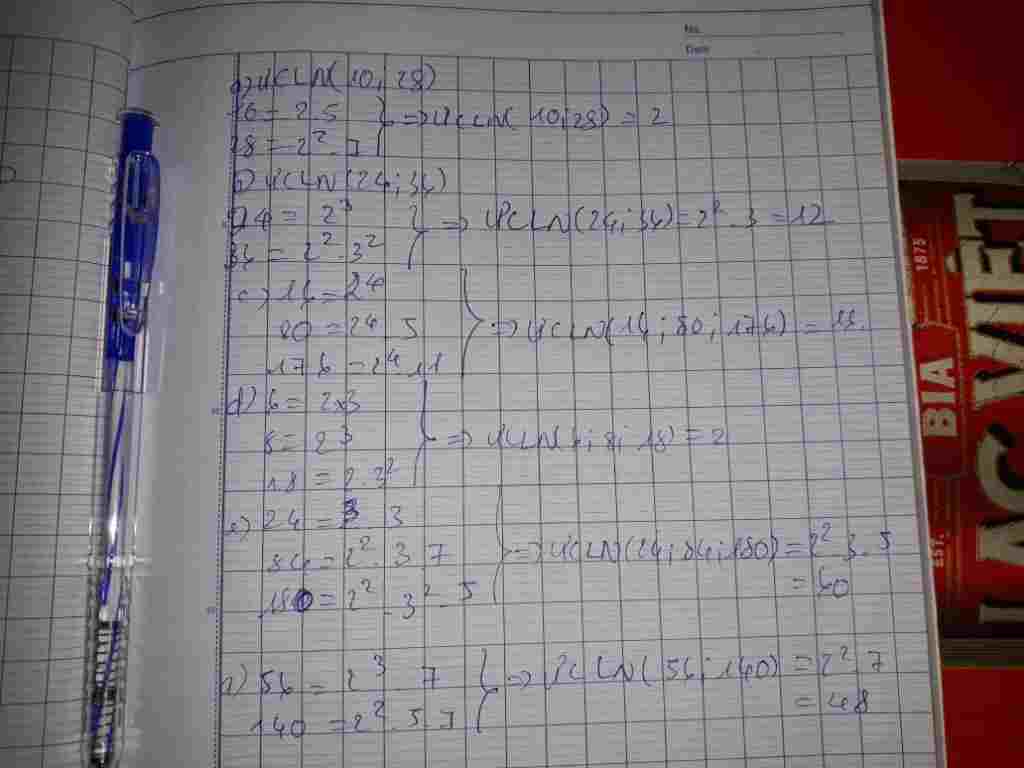 No.
Date
a) ƯCLN(10; 28)
10 = 2.5
28 = 2². 7
=> ƯCLN( 10;28) = 2
b) ƯCLN(24; 36)
24 = 2³
36 = 2². 3²
=> ƯCLN(24; 36) = 2². 3 = 12
c) 16 = 2⁴
80 = 2⁴. 5
176 = 2⁴.11
=> ƯCLN(16; 80; 176) =
d) 6 = 2x3
8 = 2³
18 = 2.3²
=> ƯCLN( ; 8; 18) = 2
e) 24 = 3
84 = 2². 3.7
180 = 2². 3². 5
=> ƯCLN(24; 84; 180) = 2². 3. 5
= 60
a) 56 = 2³. 7
140 = 2². 5.7
=> ƯCLN( 56; 140) = 2². 7
= 48
1875
BIA
LẠC VIỆT
EST.